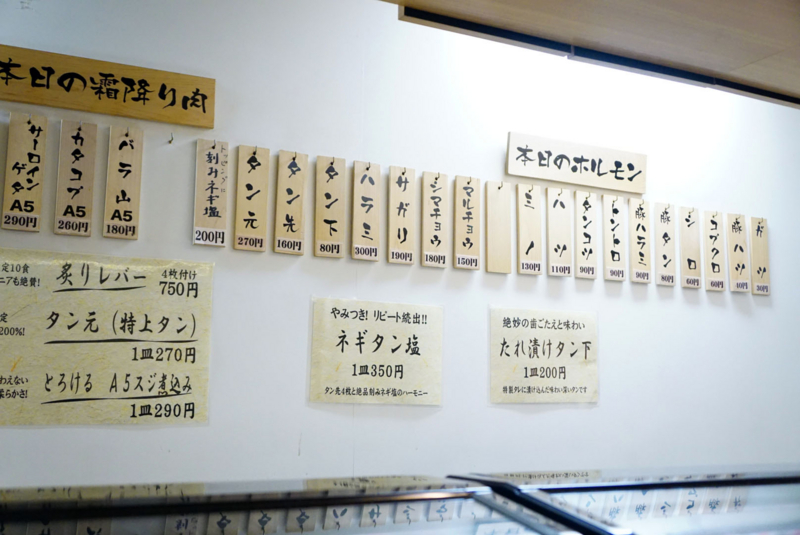 本日の霜降り肉
サーロインゲタ A5 290円
カタコブ A5 260円
バラ山 A5 180円
トッピング
刻みネギ塩 200円
タン元 270円
タン先 160円
タン下 80円
ハラミ 300円
サガリ 190円
シマチョウ 180円
マルチョウ 150円
本日のホルモン
ミノ 130円
ハツ 110円
タンコツ 90円
トントロ 90円
豚ハラミ 90円
豚タン 80円
シロ 60円
コブクロ 60円
豚ハツ 40円
ガツ 30円
定10食
ニアも絶賛!
炙りレバー 4枚付け
750円
定
200%!
タン元(特上タン)
1皿270円
わえない
柔らかさ!
とろける A5スジ煮込み
1皿290円
やみつき! リピート続出!!
ネギタン塩
1皿350円
タン先4枚と絶品刻みネギ塩のハーモニー
絶妙の歯ごたえと味わい
たれ漬けタン下
1皿200円
特製タレに漬け込んだ味わい深いタンです